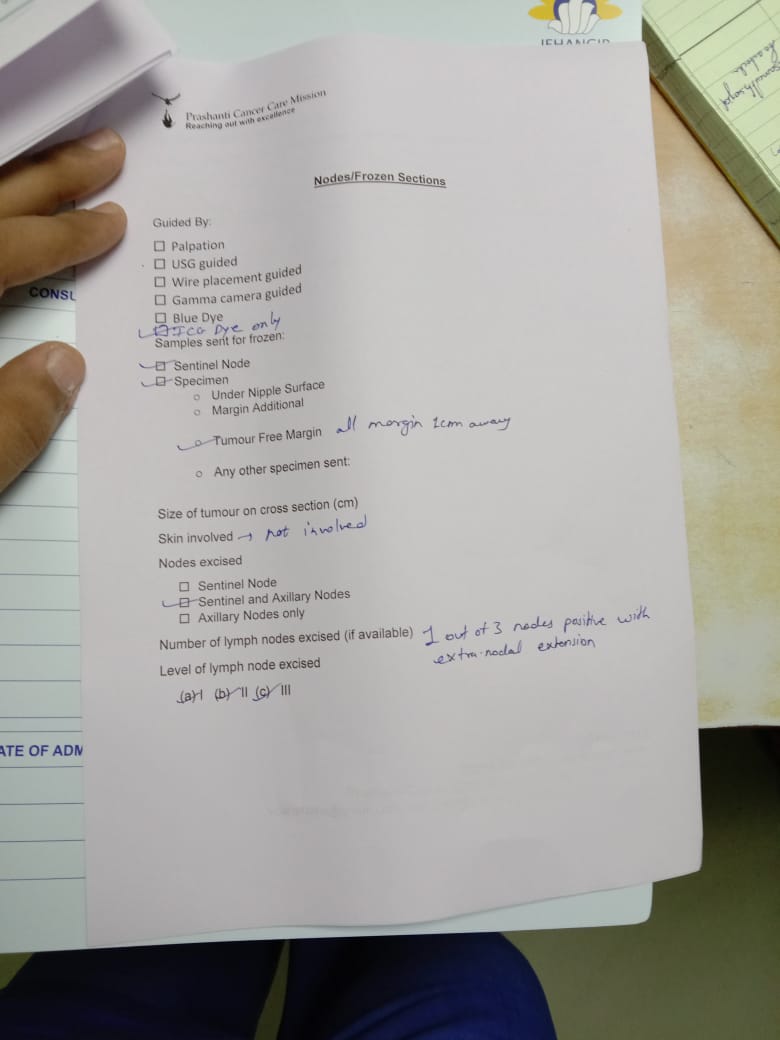 JEHANGIR
Prashanti Cancer Care Mission
Reaching out with excellence
Nodes/Frozen Sections
Guided By:
☐ Palpation
☐ USG guided
☐ Wire placement guided
☐ Gamma camera guided
☐ Blue Dye
ICG Dye only
Samples sent for frozen:
☐ Sentinel Node
☐ Specimen
○ Under Nipple Surface
○ Margin Additional
○ Tumour Free Margin all margin 1cm away
○ Any other specimen sent:
Size of tumour on cross section (cm)
Skin involved → not involved
Nodes excised
☐ Sentinel Node
☐ Sentinel and Axillary Nodes
☐ Axillary Nodes only
Number of lymph nodes excised (if available) 1 out of 3 nodes positive with
extra-nodal extension
Level of lymph node excised
(a) I (b) II (c) III
CONSU
ATE OF ADM